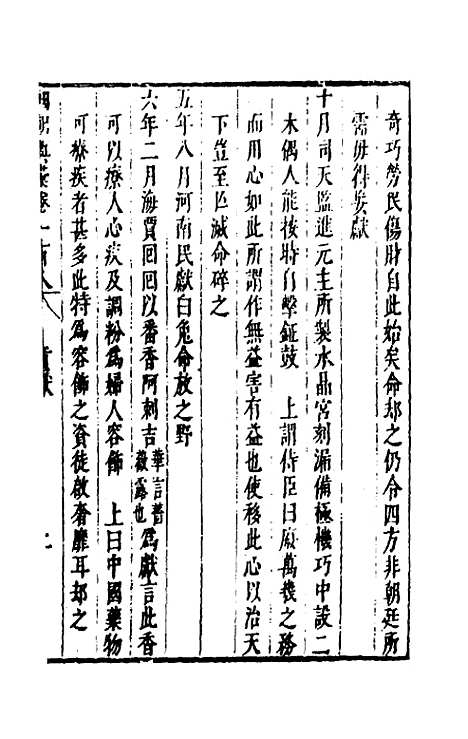 奇巧勞民傷財自此始矣命却之仍令四方非朝廷所
需毋得妄獻
十月司天監進元主所製水晶宮刻漏備極機巧中設二
木偶人能按時自擊鉦鼓　上謂侍臣曰廢萬幾之務
而用心如此所謂作無益害有益也使移此心以治天
下豈至亡滅命碎之
五年八月河南民獻白兔命放之野
六年二月海賈回回以番香阿剌吉華言薔薇露也為獻言此香
可以療人心疾及調粉為婦人容飾　上曰中國藥物
可療疾者甚多此特為容飾之資徒啟奢靡耳却之
卷一百八
貢獻